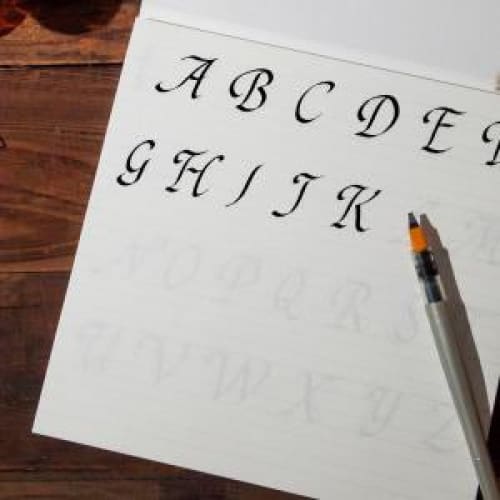 A B C D E F
G H I J K
M
N O P Q R S
U V W X Y Z